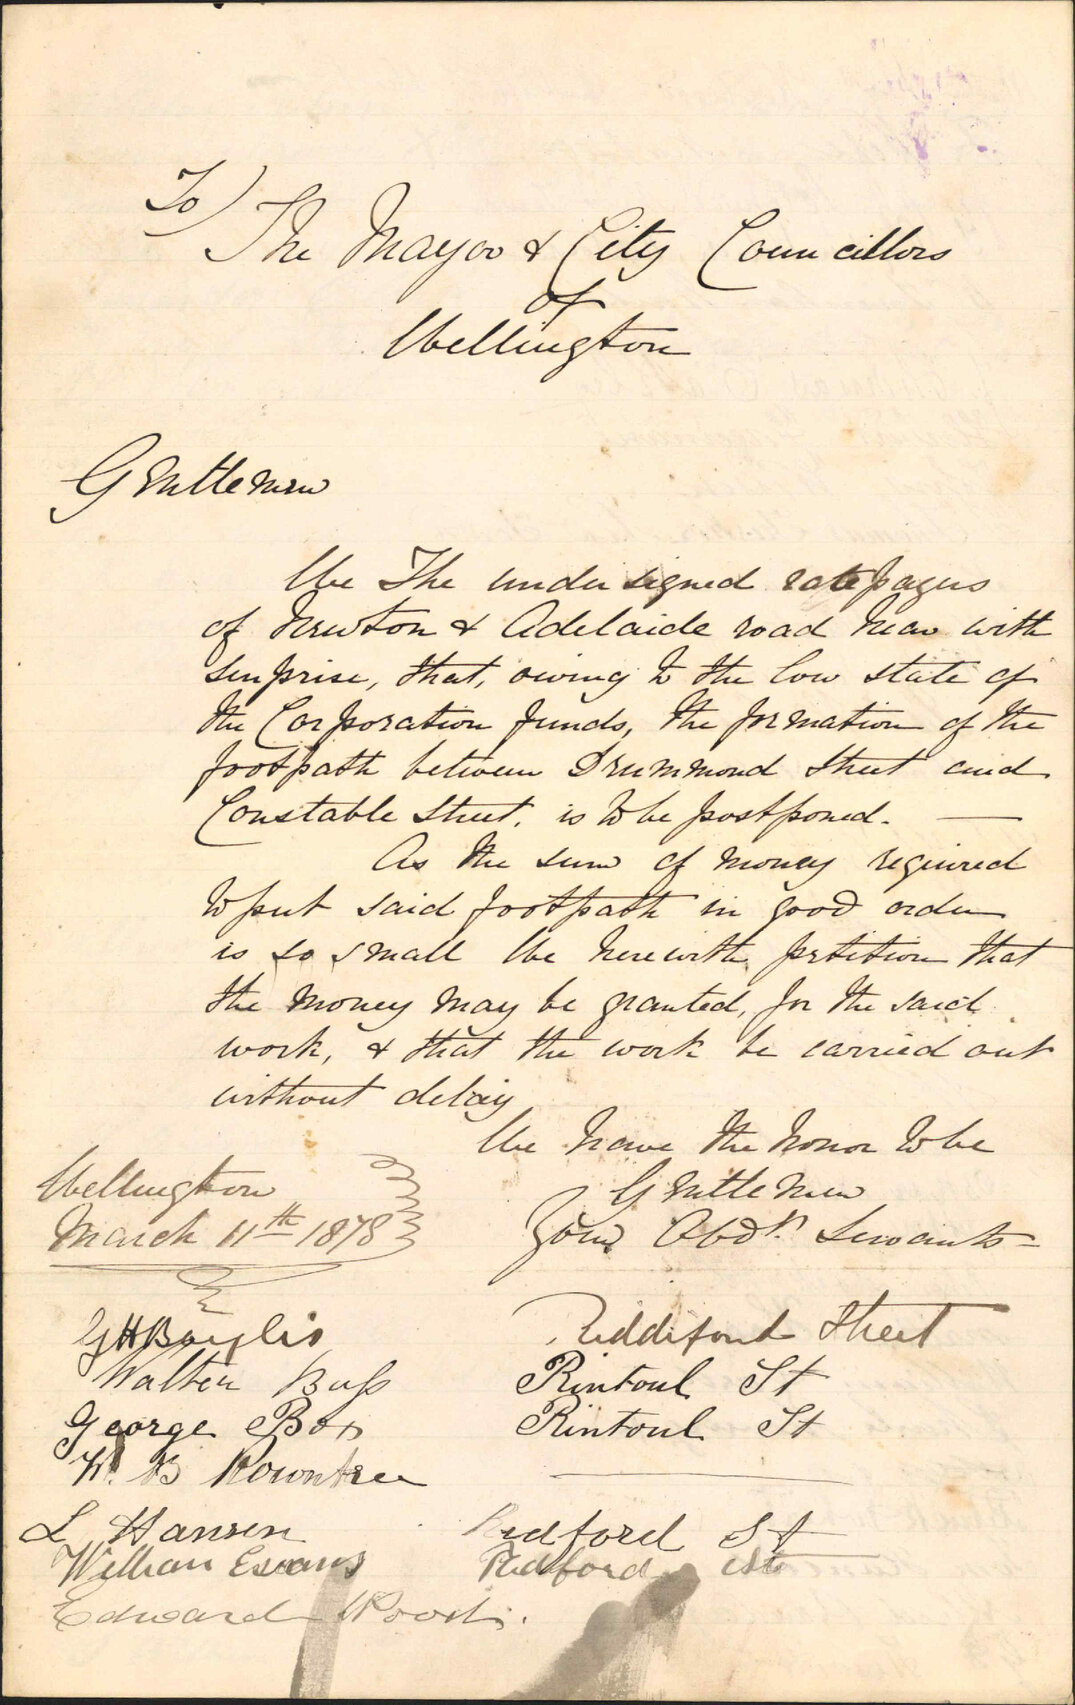 To)
The Mayor & City Councillors
of
Wellington
Gentlemen
We The undersigned ratepayers
of Newton & Adelaide road hear with
surprise, that, owing to the low state of
the Corporation funds, the formation of the
footpath between Drummond Street and
Constable Street, is to be postponed. —
As the sum of money required
to put said footpath in good order
is so small We herewith petition that
the money may be granted, for the said
work, & that the work be carried out
without delay
We have the honor to be
Gentlemen
Your Obdt. Servants -
Wellington
March 11th 1878
G H Baylis Riddiford Street
Walter Bass Rintoul St
George Box Rintoul St
W. B Rowntree —
L Hansen Redford St
William Evans Redford St
Edward